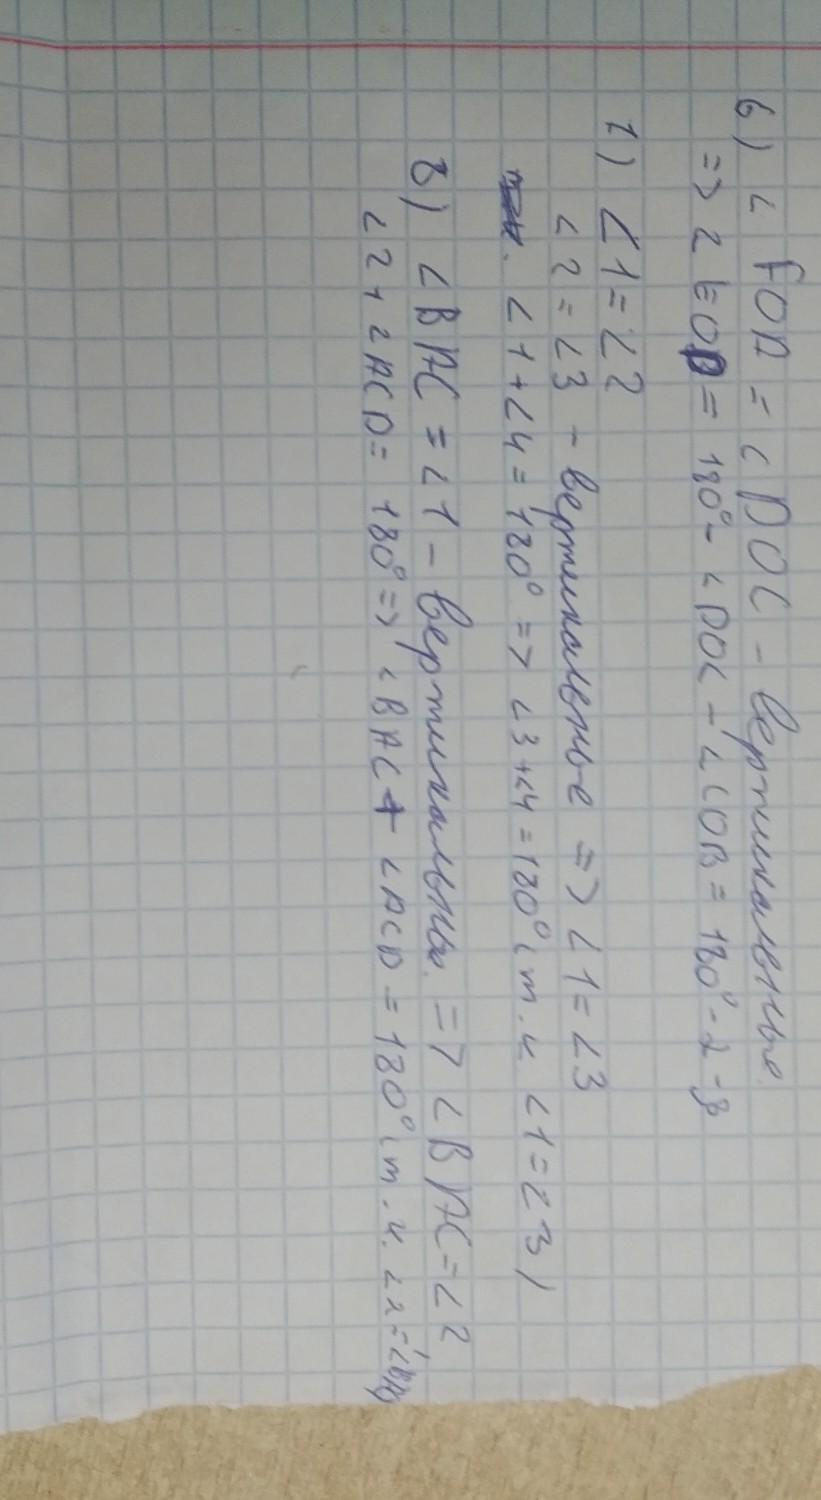 6) ∠ FOA = ∠ DOC - вертикальные
=> ∠ EOD = 180° - ∠DOC - ∠COB = 180° - α - β
7) ∠1 = ∠2
∠2 = ∠3 - вертикальные => ∠1 = ∠3
∠1 + ∠4 = 180° => ∠3 + ∠4 = 180° (т.к. ∠1 = ∠3)
8) ∠BAC = ∠1 - вертикальны. => ∠BAC = ∠2
∠2 + ∠ACD = 180° => ∠BAC + ∠ACD = 180° (т.к. ∠2 =